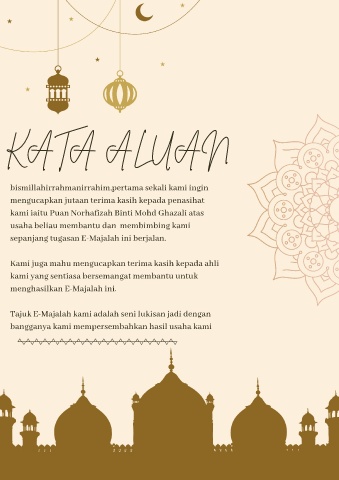 KATA ALUAN
bismillahirrahmanirrahim,pertama sekali kami ingin
mengucapkan jutaan terima kasih kepada penasihat
kami iaitu Puan Norhafizah Binti Mohd Ghazali atas
usaha beliau membantu dan membimbing kami
sepanjang tugasan E-Majalah ini berjalan.
Kami juga mahu mengucapkan terima kasih kepada ahli
kami yang sentiasa bersemangat membantu untuk
menghasilkan E-Majalah ini.
Tajuk E-Majalah kami adalah seni lukisan jadi dengan
bangganya kami mempersembahkan hasil usaha kami